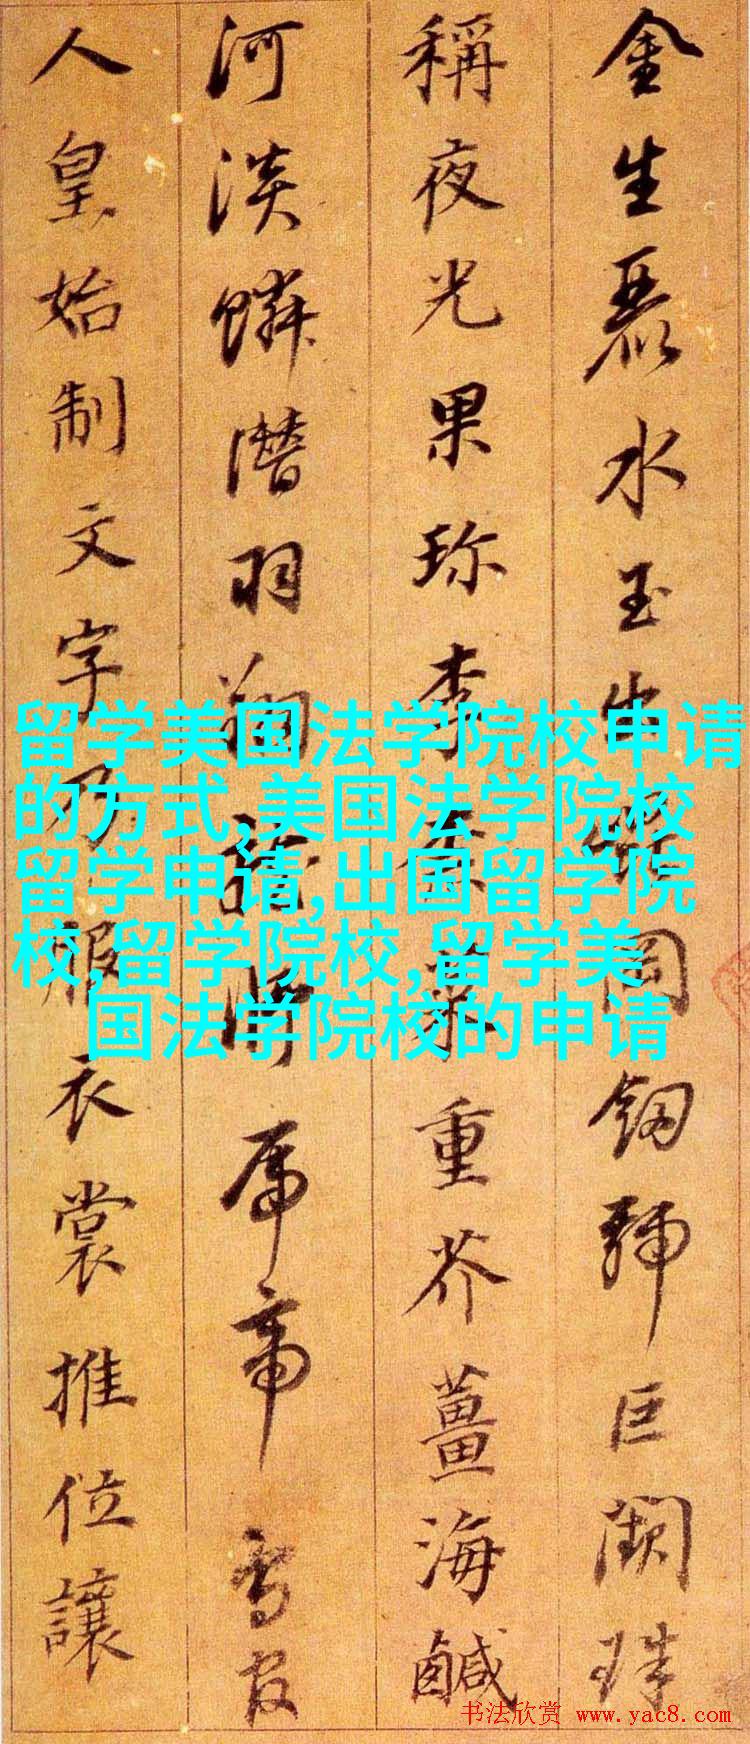 金生麗水玉出岡釼號巨闕珠
稱夜光果珍李柰菜重芥薑海鹹
河淡鱗潛羽翔龍帝鳥官
人皇始制文字乃服衣裳推位讓
留学美国法学院校申请
的方式,美国法学院校
留学申请,出国留学院
校,留学院校,留学美
国法学院校的申请
书法欣赏 www.yac8.com